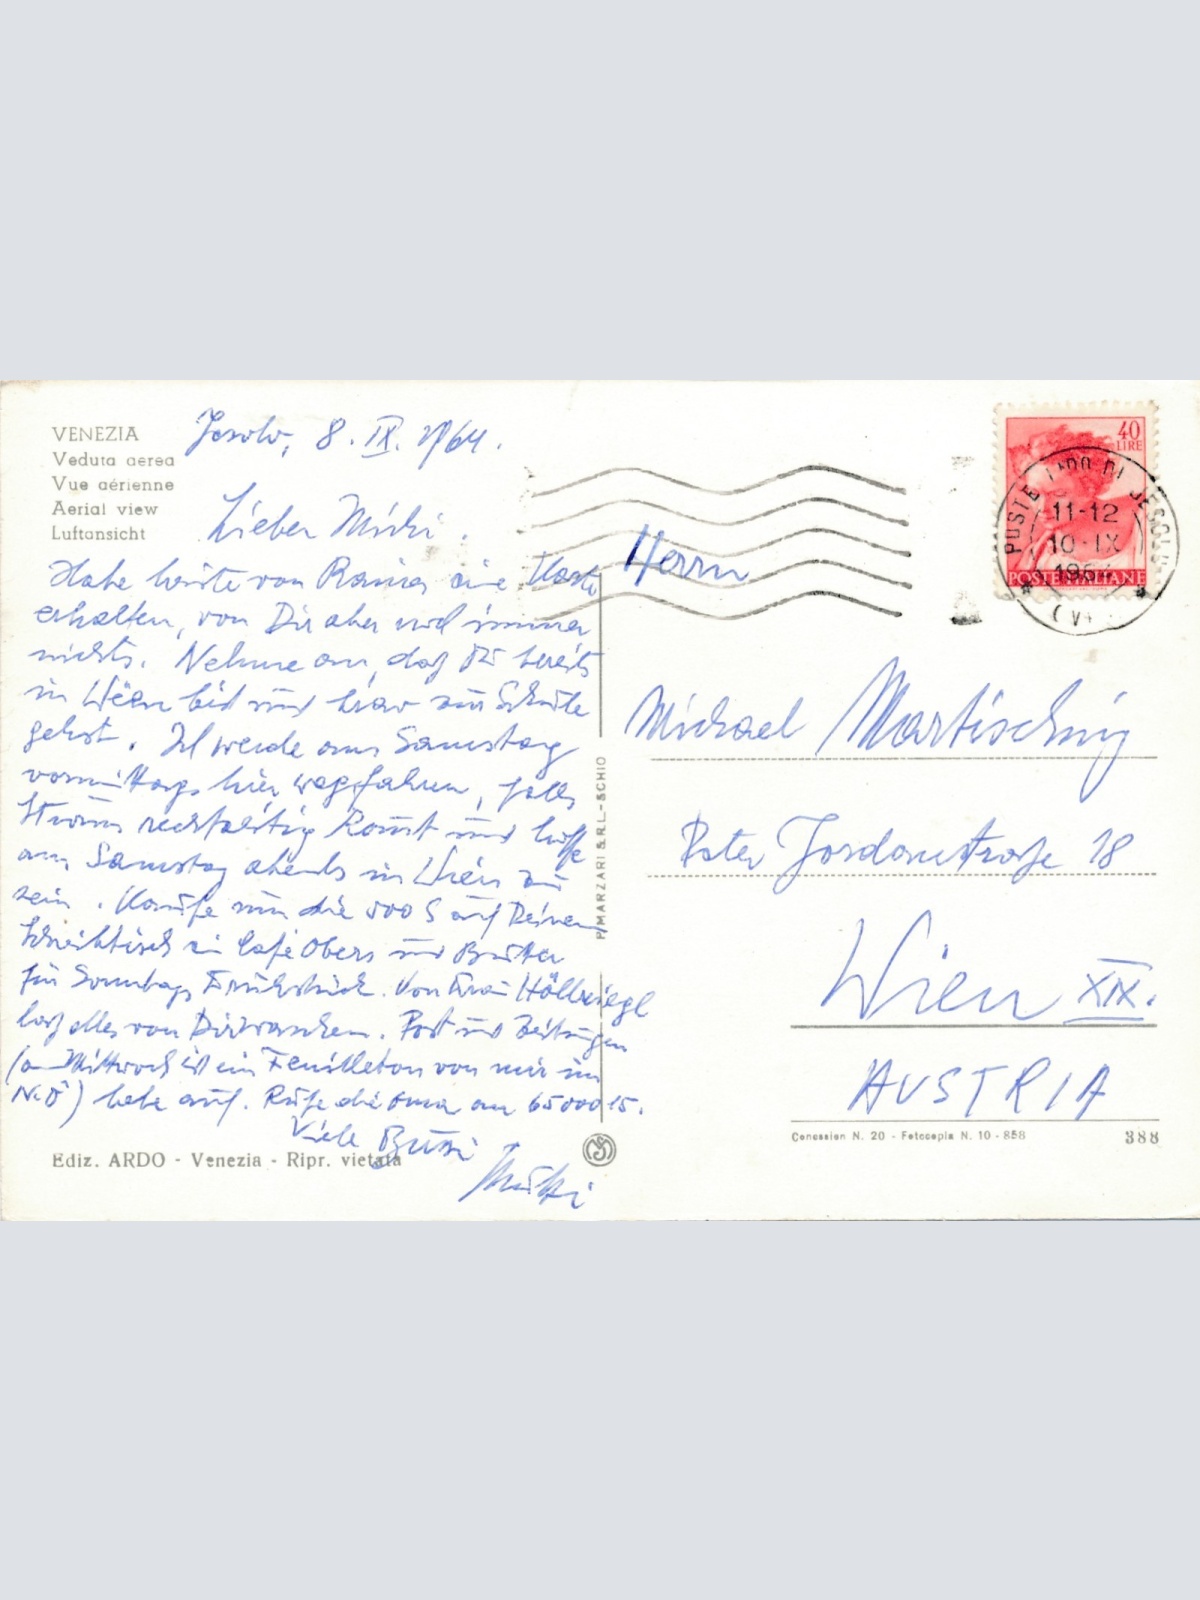 VENEZIA
Veduta aerea
Vue aérienne
Aerial view
Luftansicht
Jesolo, 8. IX. 1964.
Lieber Michi.
Habe heute von Rainer eine Karte
erhalten, von Dir aber noch immer
nichts. Nehme an, daß Du bereits
in Wien bist und brav zur Schule
gehst. Ich werde am Samstag
vormittags hier wegfahren, falls
Strom rechtzeitig kommt und hoffe
am Samstag abends in Wien zu
sein. Kaufe um die 500 S auf Deinem
Schreibtisch ein Café Obers und Butter
für Sonntags Frühstück. Von Frau Höllriegl
laß alles von Dir waschen. Post und Zeitungen
(am Mittwoch ist ein Feuilleton von mir im
N.Ö) hebe auf. Rufe die Oma an 65 000 15.
Viele Bussi
Mutti
Ediz. ARDO - Venezia - Ripr. vietata
P. MARZARI S.R.L. - SCHIO
40
LIRE
POSTE ITALIANE
POSTE LIDO DI JESOLO
11-12
10·IX
1964
Herrn
Michael Martischnig
Pater Jordanstraße 18
Wien XIX.
AUSTRIA
Concession N. 20 - Fotocopia N. 10 - 858
388